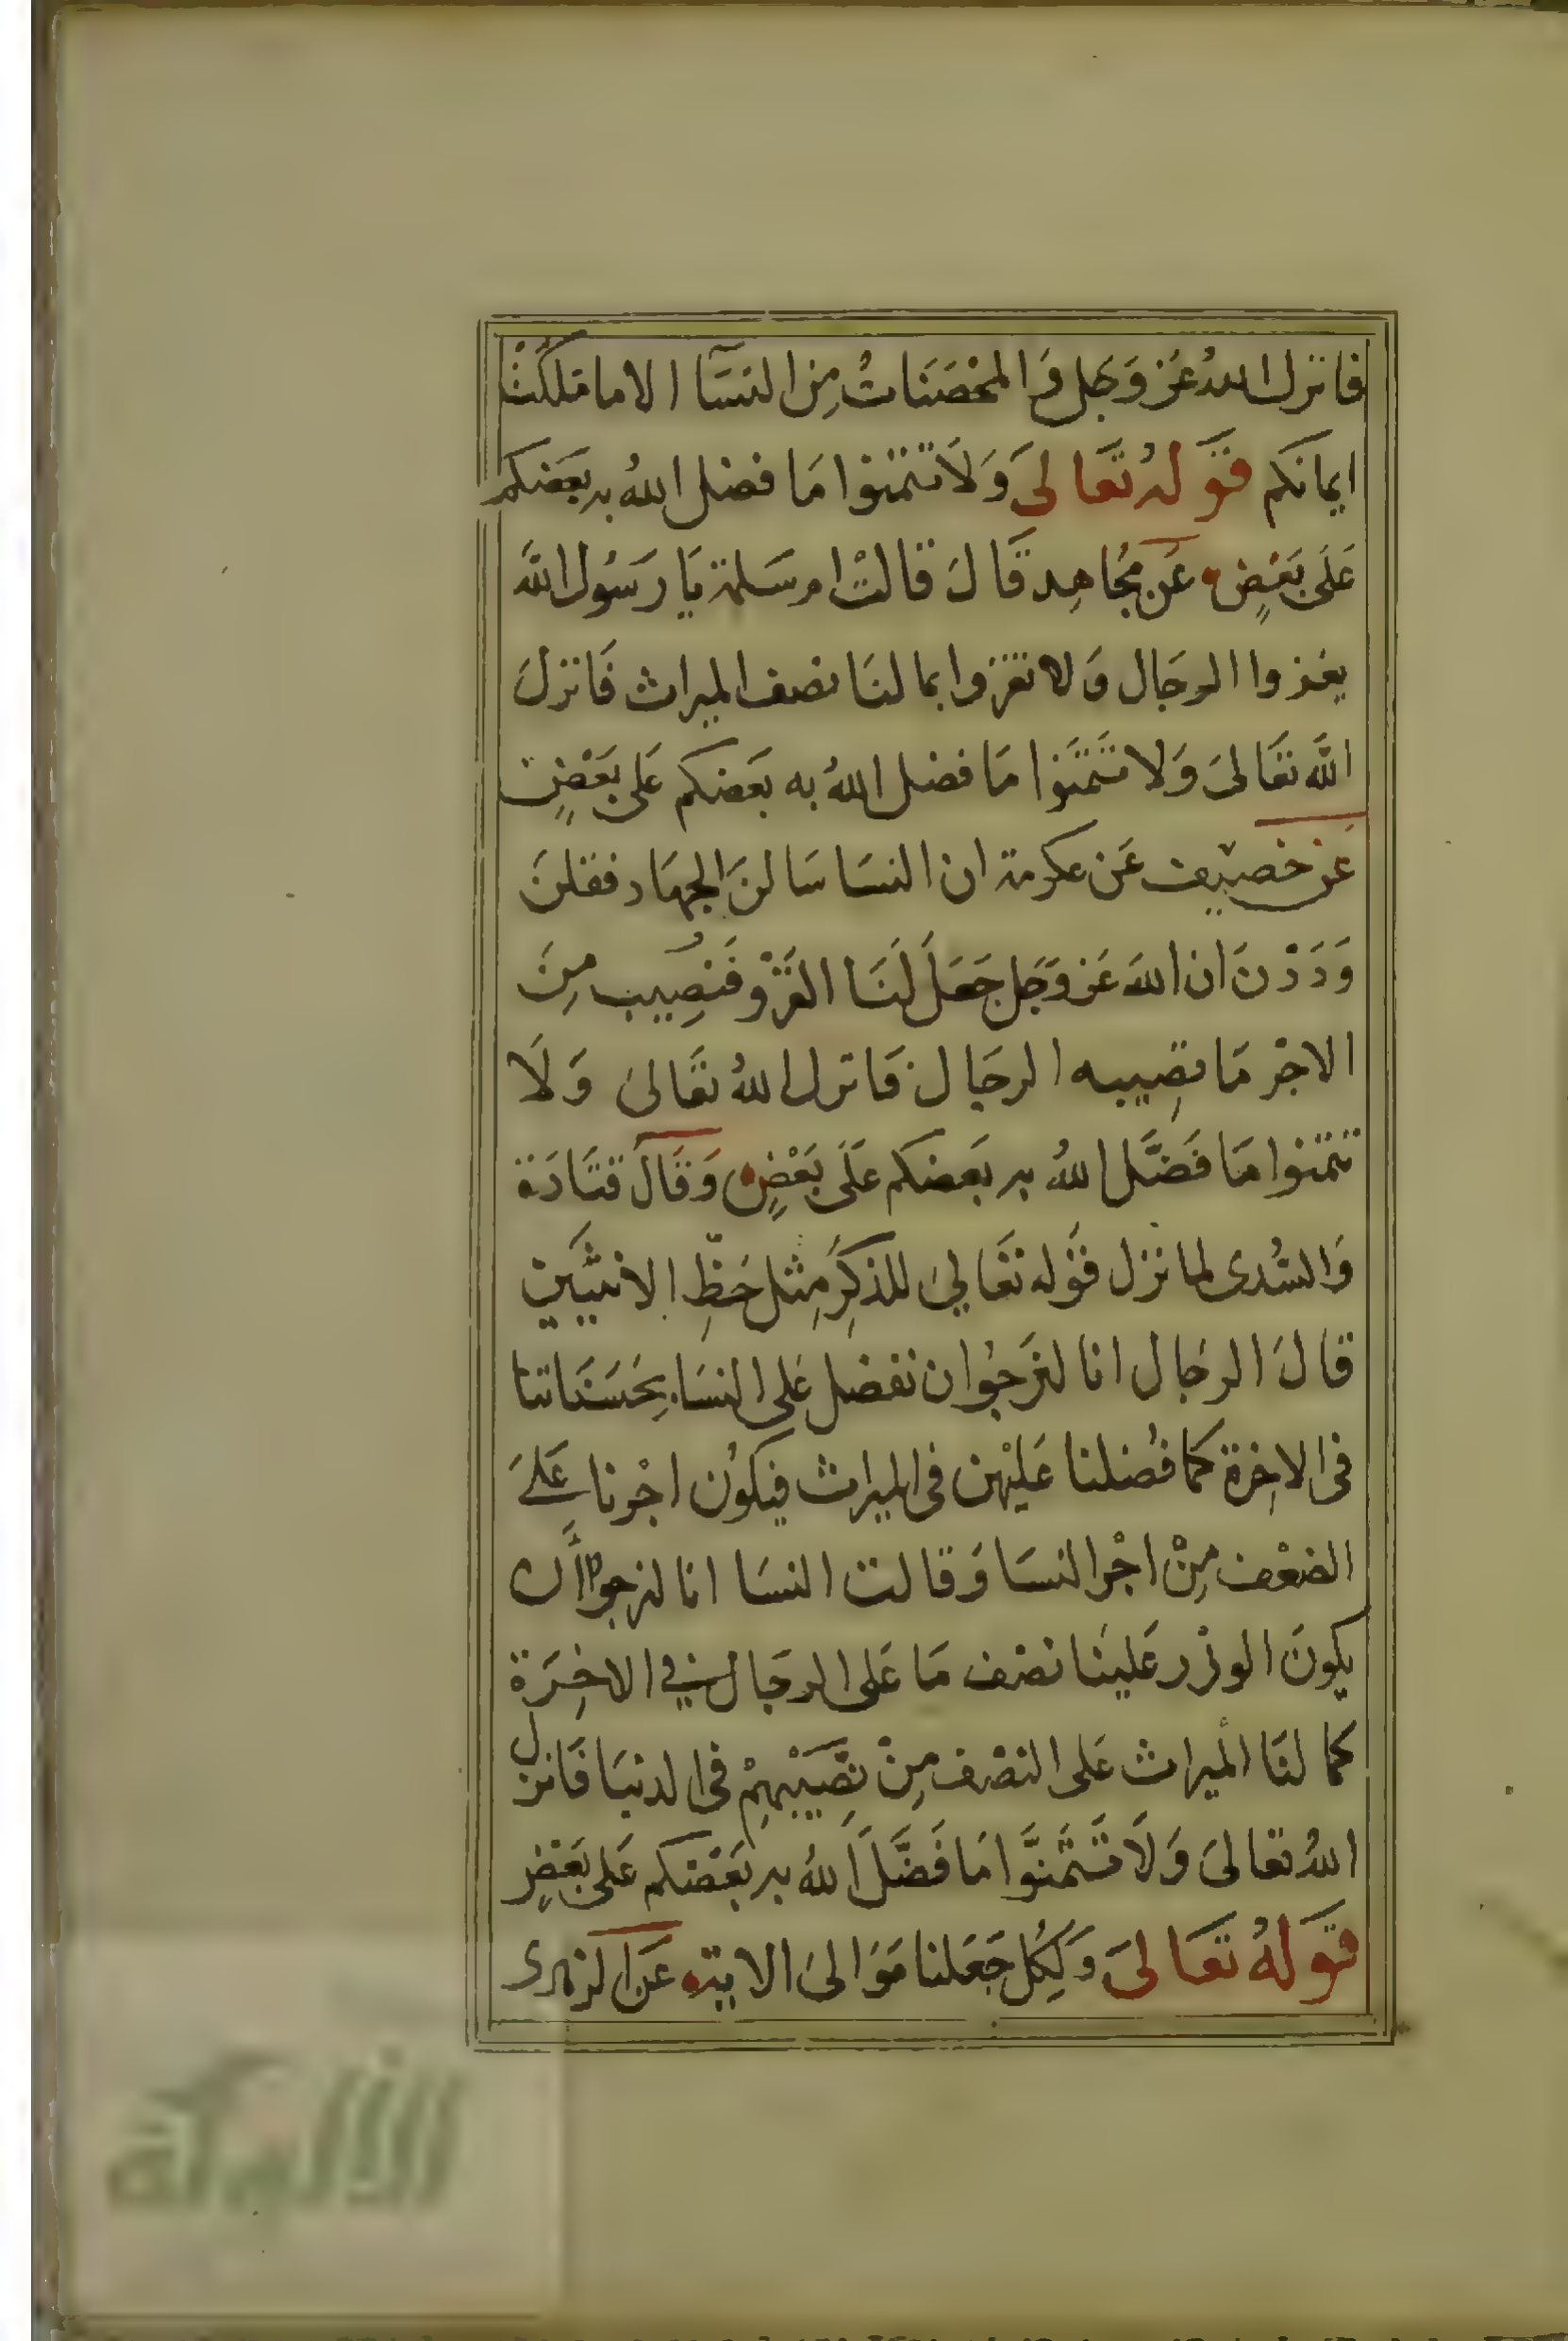 فانزل اللهُ عَز وَجَل وَالمحْصَنَاتُ مِن النسَآ الا ما مَلكتْ
ايمانكم قَوَلهُ تَعَالىَ وَلَا تتمنوا مَا فضل اللهُ به بعَضكم
عَلَى بَعْضٍ عَن مجُاهِد قَالَ قالتْ ام سَلمة يَا رَسُول اللَّه
يغزوا الرجَال وَلا نغزوا بما لنَا نصف الميراث فَانزلَ
اللَّه تعَالىَ وَلا تتَمَنَوا مَا فضل اللهُ به بعَضكم عَلى بَعْضٍ
عَن خصَيف عَن عكرمة ان النسَا سَالنَ الجهَاد فقلنَ
وَدَدْنَ ان اللهَ عَز وَجَل جَعَلَ لَنَا الغَزْو فَنُصِيب مِنَ
الاجْر مَا تصِيبه الرجَال فَانزل اللهُ تعَالىَ وَلَا
تتمنوا مَا فَضَّل اللهُ به بَعضكم عَلَى بَعْضٍ وَقَالَ قتَادَة
وَالسُدى لما نزل قَوله تعَالىَ للذكِرَ مِثل حَظِّ الانثيَين
قالَ الرجَال انا لنرَجوُا ان نفضل عَلى النسَا بِحَسَنَاتنا
فى الاخِرة كما فُضلنا عَليْهن فى الميراث فيكوُن اجْرنا عَلىَ
الضعْف مِنْ اجْر النسَا وَقالت النسَا انا لنرجوا أَن
يكونَ الوزْر عَلينَا نصْف مَا عَلى الرجَال في الاخِرَة
كما لنَا الميراث عَلى النصْف مِنْ نصِيَبْهِمْ فى الدنيَا فَانزل
اللهُ تعَالىَ وَلَا تَتَمَنَّوا مَا فَضَّلَ اللهُ به بعَضكم عَلى بَعْضٍ
قَولهُ تعَالىَ وَلِكُل جَعَلنا مَوَالىَ الاية عَن الزهرى
الألوكة